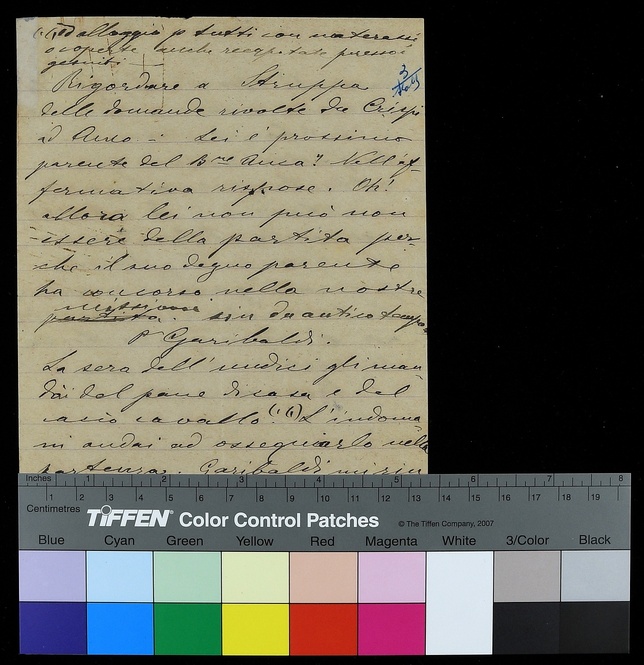 (1) D'alloggio p tutti con materassi
e coperte anche recapitato presso i
gesuiti
3
Ricordare a Struppa
delle domande rivolte da Crispi
ad Anso - Lei è prossimo
parente del B.ne Anca? Nell'af-
fermativa rispose. Oh!
allora lei non può non
essere della partita per-
chè il suo degno parente
ha concorso nella nostra
missione
partita sin da antico tempo
P Garibaldi.
La sera dell'undici gli man-
dai del pane di casa e del
cacio cavallo (1) L'indoma-
ni andai ad ossequiarlo nella
partenza. Garibaldi mi rin
Inches 1 2 3 4 5 6 7 8
1 2 3 4 5 6 7 8 9 10 11 12 13 14 15 16 17 18 19
Centimetres
TIFFEN® Color Control Patches © The Tiffen Company, 2007
Blue Cyan Green Yellow Red Magenta White 3/Color Black